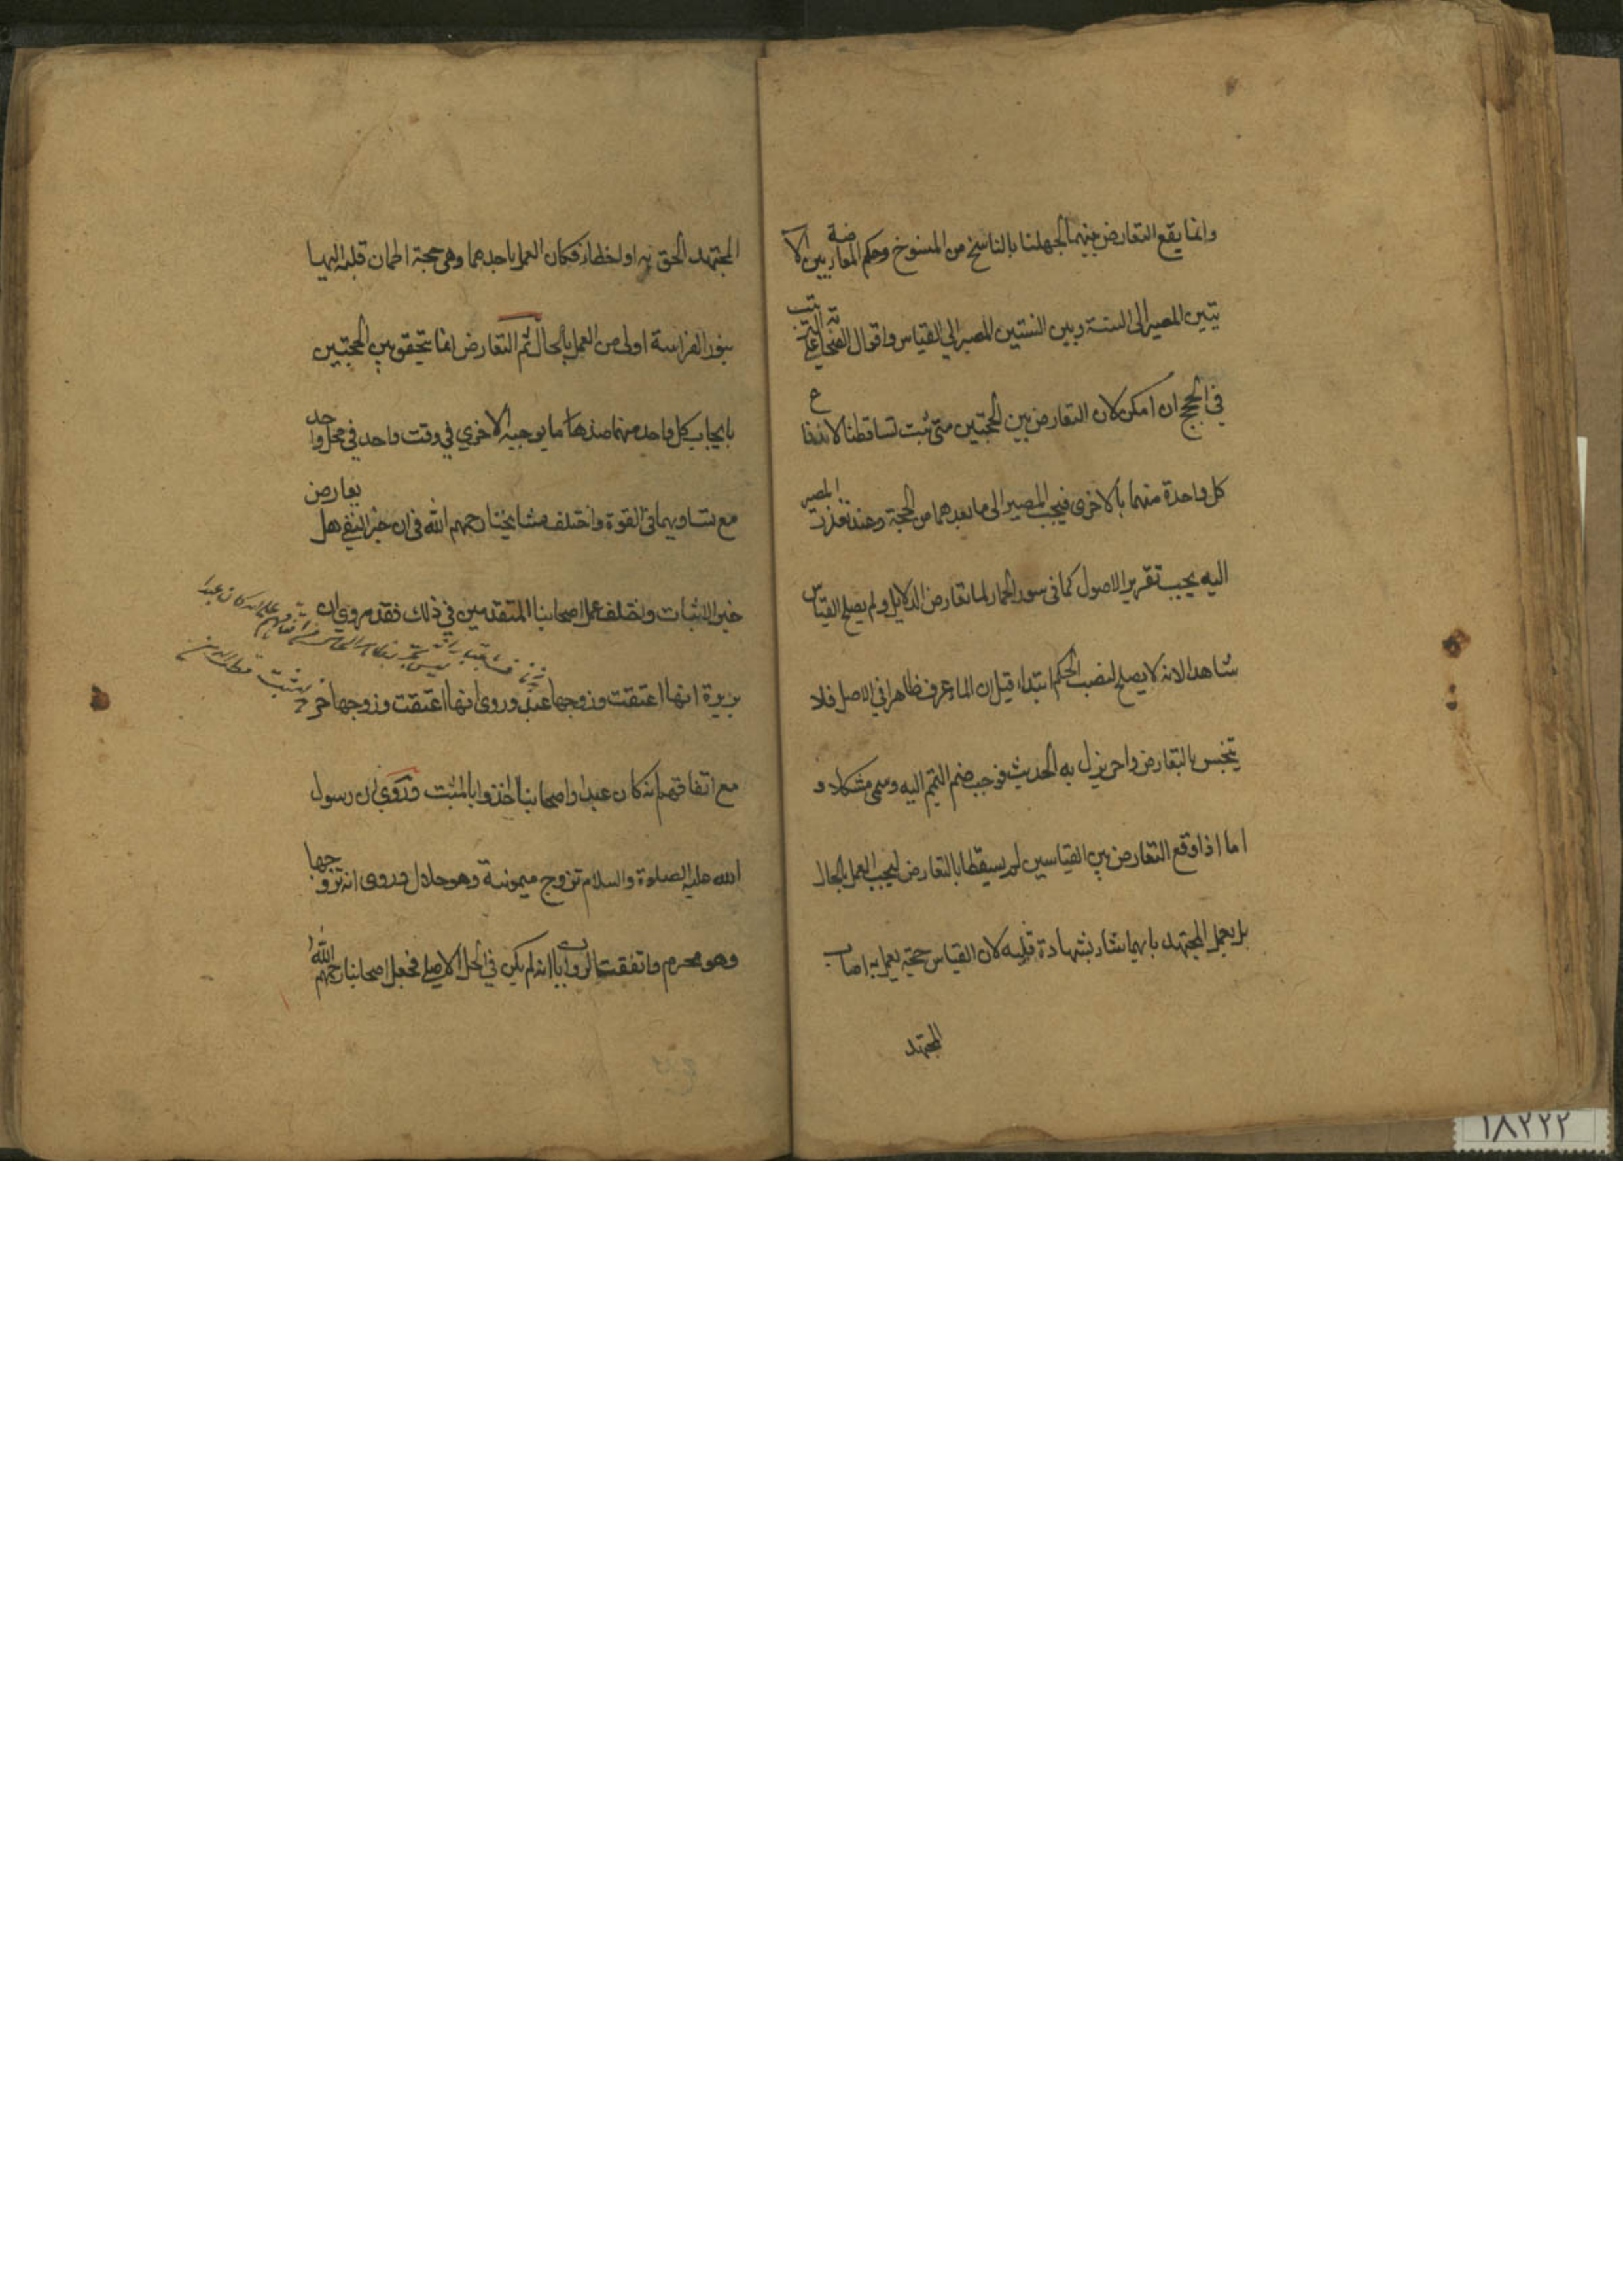 وانما يقع التعارض بينهما لجهلنا بالناسخ من المنسوخ وحكم المعارضة بين الا
يتين المصير الى السنة وبين السنتين المصير الى القياس واقوال الصحابة على الترتيب
في الحجج ان امكن لان التعارض بين الحجتين متى ثبت تساقطنا لاندفاع
كل واحدة منهما بالاخرى فيجب المصير الى ما بعدهما من الحجة وعند تعذرت المصير
اليه يجب تقرير الاصول كما في سور الحمار لما تعارض الدلايل ولم يصلح القياس
شاهدا لانه لا يصلح لنصب الحكم ابتداء قيل ان الماء عرف طاهرا في الاصل فلا
يتنجس بالتعارض ولم يزل به الحدث فوجب ضم التيمم اليه وسمى مشكلا و
اما اذا وقع التعارض بين القياسين لم يسقطا بالتعارض ليجب العمل بالحال
بل يعمل المجتهد بايهما شاء بشهادة قلبه لان القياس حجة يعمل به اصاب
المجتهد
المجتهد الحق به او اخطاء فكان العمل باحدهما وهي حجة اطمان قلبه اليها
بنور الفراسة اولى من العمل بالحال ثم التعارض انما يتحقق بين الحجتين
بايجاب كل واحد منهما ضد ما يوجبه الاخرى في وقت واحد في محل واحد
مع تساويهما في القوة واختلف مشايخنا رحمهم الله في ان خبر النفي هل يعارض
خبر الاثبات واختلف عمل اصحابنا المتقدمين في ذلك فقد روي ان
بريرة انها اعتقت وزوجها عبد وروى انها اعتقت وزوجها حر
مع اتفاقهم انه كان عبدا واصحابنا اخذوا بالمثبت وروي ان رسول
الله عليه الصلوة والسلام تزوج ميمونة وهو حلال وروى انه تزوجها
وهو محرم واتفقت الروايات انه لم يكن في الحل الاصلي فجعل اصحابنا رحمهم الله
١٨٢٢٢